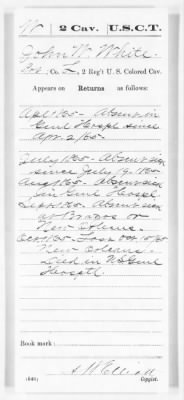 W | 2 Cav. | U.S.C.T.
John W. White
Co. L, 2 Reg't U. S. Colored Cav.
Appears on Returns as follows:
Apl 1865 - Absent in
Genl Hospl since
Apr. 2/65.
July 1865 - Absent sick
since July 19, 1865
Aug 1865 - Absent sick
in Genl Hospl
Sept 1865 - Absent sick
at Brazos or
New Orleans.
Oct 1865 - Loss Oct 10/65
New Orleans.
Died in US Genl
Hospl.
Book mark:
(646)
Copyist.